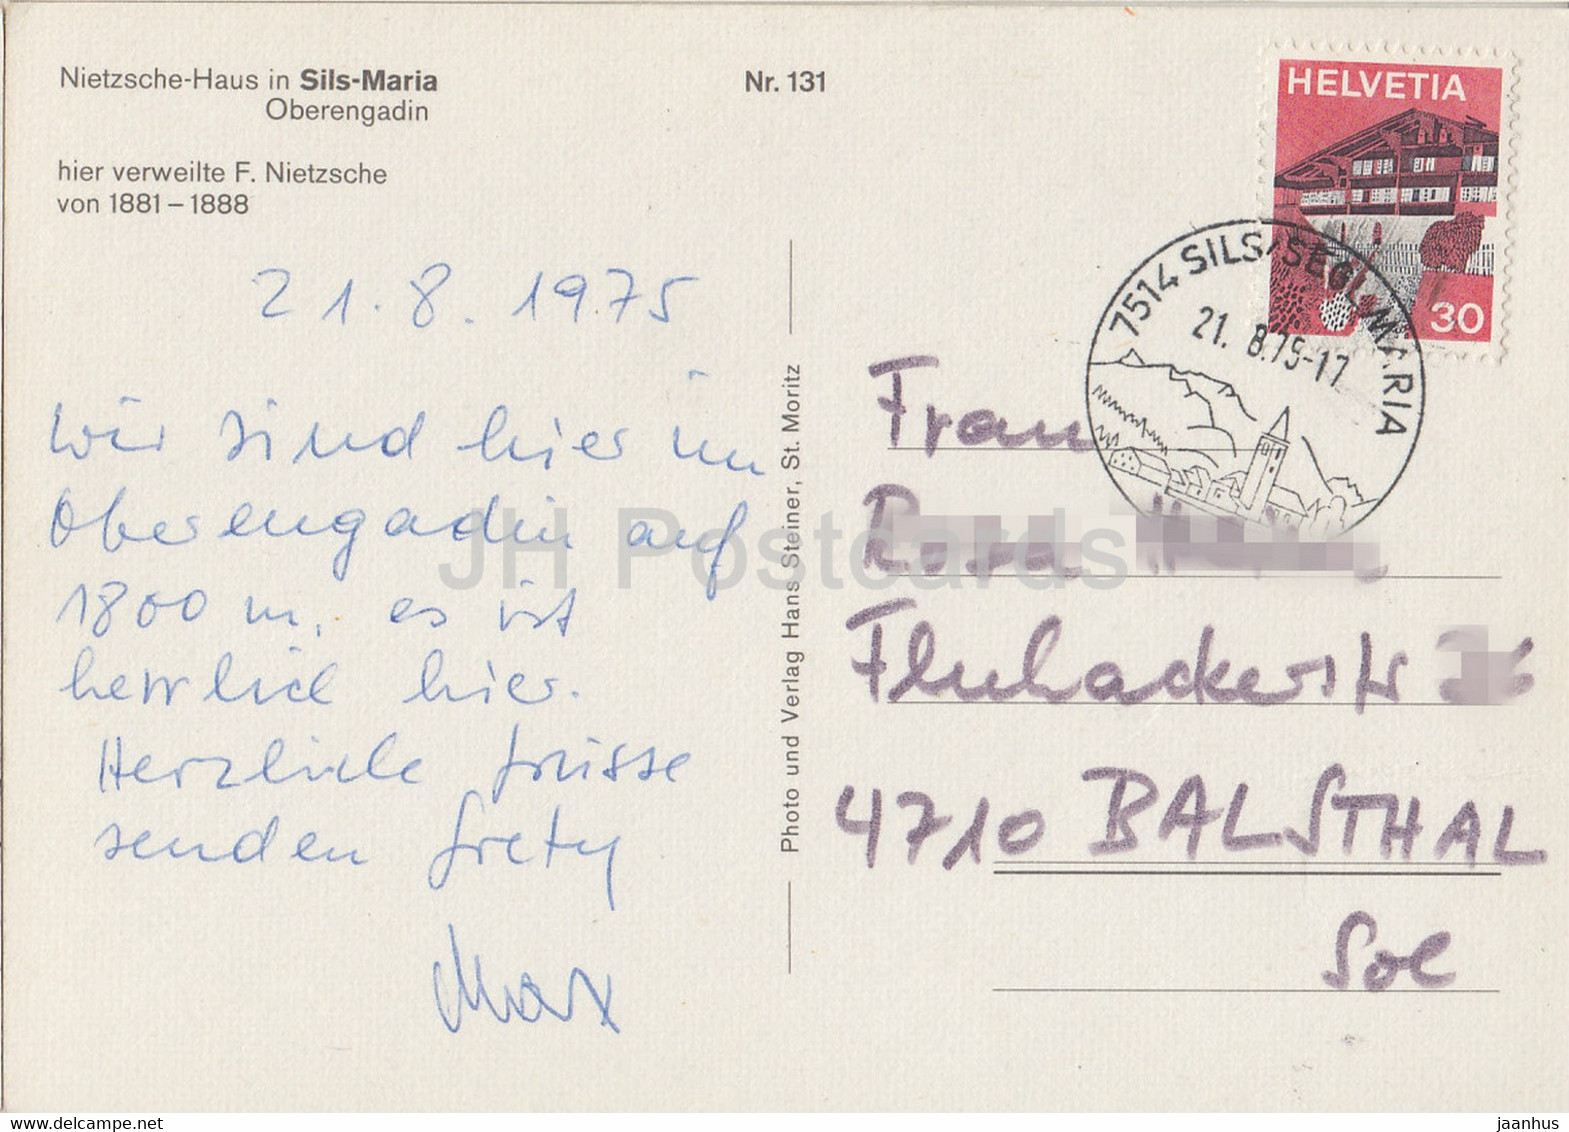 Nietzsche-Haus in Sils-Maria
Oberengadin
Nr. 131
hier verweilte F. Nietzsche
von 1881 – 1888
21.8.1975
Wir sind hier im
Oberengadin auf
1800 m, es ist
herrlich hier.
Herzliche Grüsse
senden Grety
Max
Photo und Verlag Hans Steiner, St. Moritz
HELVETIA
30
7514 SILS/SEGL MARIA
21. 8.75-17
Frau
Rosa
Fluhackerstr
4710 BALSTHAL
Sol
JH Postcards
delcampe.net
jaanhus